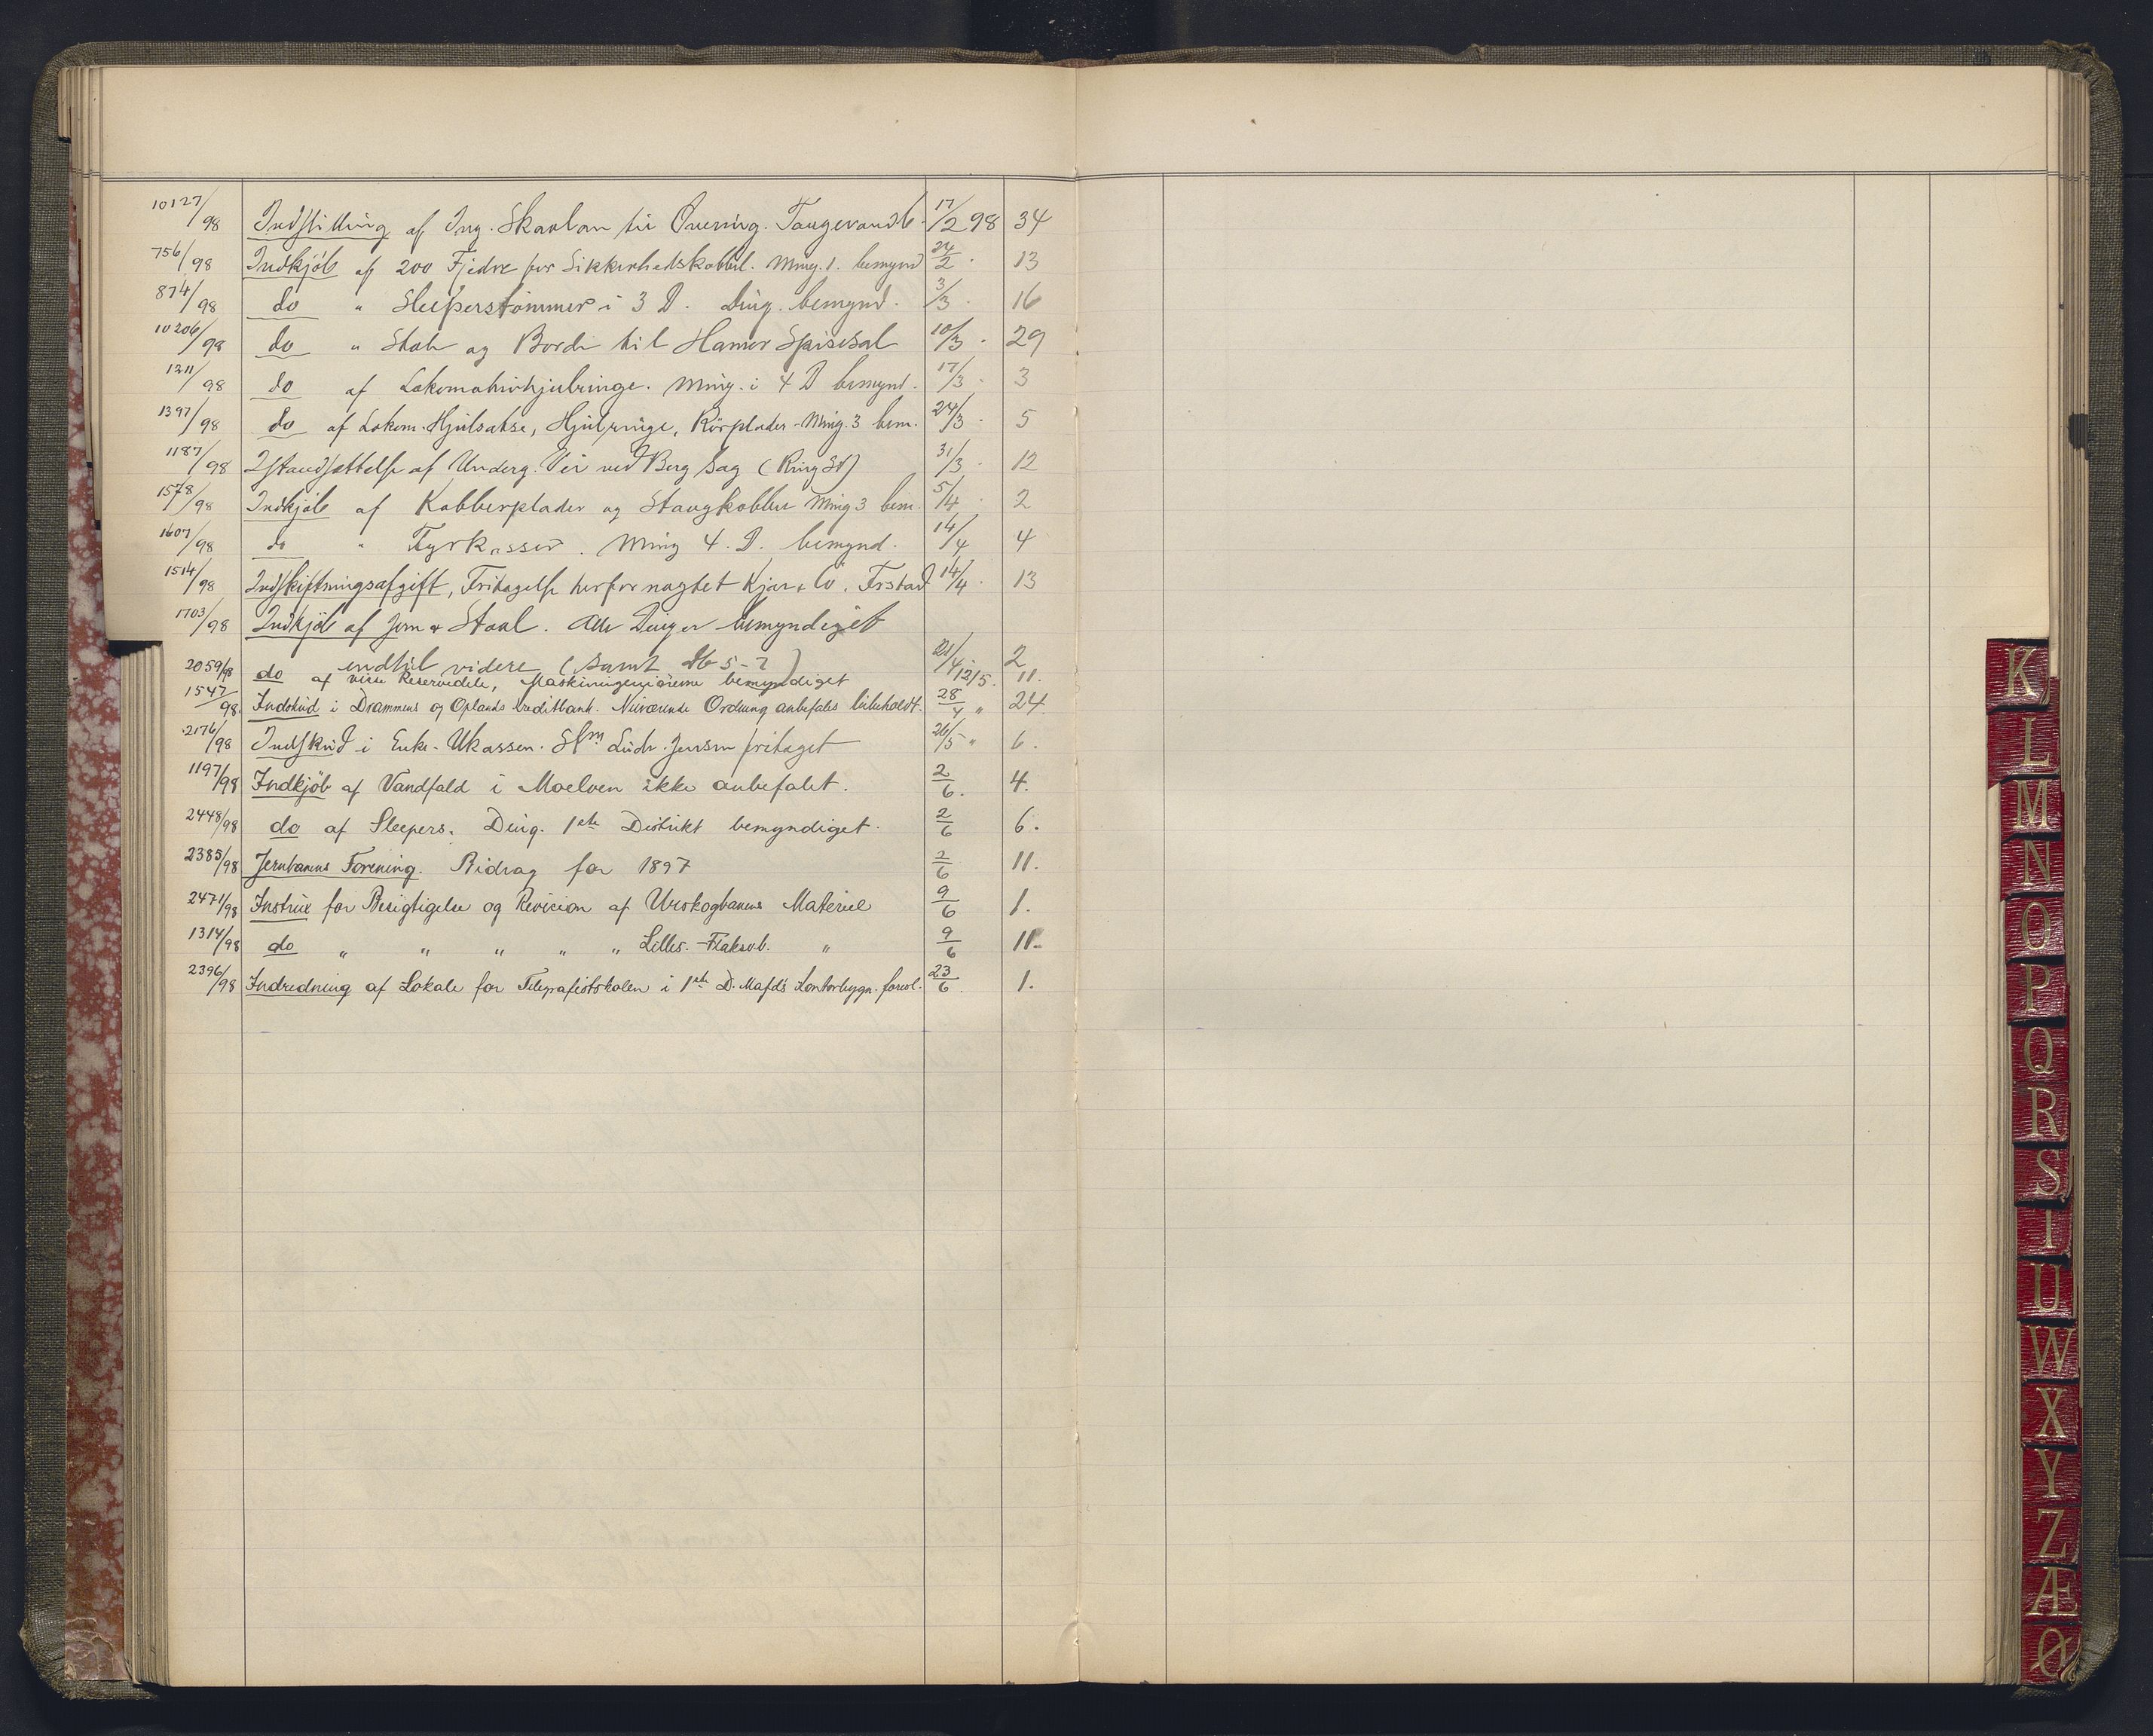 10127/98 Indstilling af Ing. Skavlan til Overing. 17/2 98 34
756/98 Indkjöb af 200 Fjedre for Sikkerhedskobbel. Ming. 1. bemynd 24/2 13
874/98 do " Sleeperstömmer i 3 D. Ding. bemynd. 3/3 16
10206/98 do " Stole og Borde til Hamar Spisesal 10/3 29
1211/98 do af Lokomotivhjulringe. Ming. i 4 D bemynd. 17/3 3
1397/98 do af Lokom. Hjulsatse, Hjulringe, Rörplader - Ming. 3 bem. 24/3 5
1187/98 Istandsættelse af Underg. Vei ved Berg Sag (Ring St) 31/3 12
1578/98 Indkjöb af Kobberplader og Stangkobber Ming 3 bem. 5/4 2
1607/98 do " Fyrkasser. Ming 4. D. bemynd. 14/4 4
1514/98 Indskiftningsafgift, Fritagelse herfor nægtet Kjær & Co. Frstad 14/4 13
1703/98 Indkjöb af Jern & Staal. Alle Dinger bemyndiget
indtil videre (samt 21/4 12/5 2
2059/98 do af visse Reservedele, Maskiningeniörerne bemyndiget 11.
1547/98 Indskud i Drammens og Oplands Kreditbank. Nuværende Ordning anbefales bibeholdt. 28/4 " 24
2176/98 Indskud i Enke-Ukassen. Stm Ludv. Jensen fritaget 26/5 " 6.
1197/98 Indkjöb af Vandfald i Moelven ikke anbefalet. 2/6. 4.
2448/98 do af Sleepers. Ding. 1ste Distrikt bemyndiget. 2/6 6.
2385/98 Jernbanens Forening. Bidrag for 1897 2/6 11.
2471/98 Instrux for Besigtigelse og Revision af Urskogbanens Materiel 9/6 1.
1314/98 do " " " " " Lilles.-Flaksv.b. " 9/6 11.
2396/98 Indredning af Lokale for Telegrafistskolen i 1ste D. Mafds Kontorbygn. 23/6. 1.
K
L
M
N
O
P
Q
R
S
T
U
W
X
Y
Z
Æ
Ø